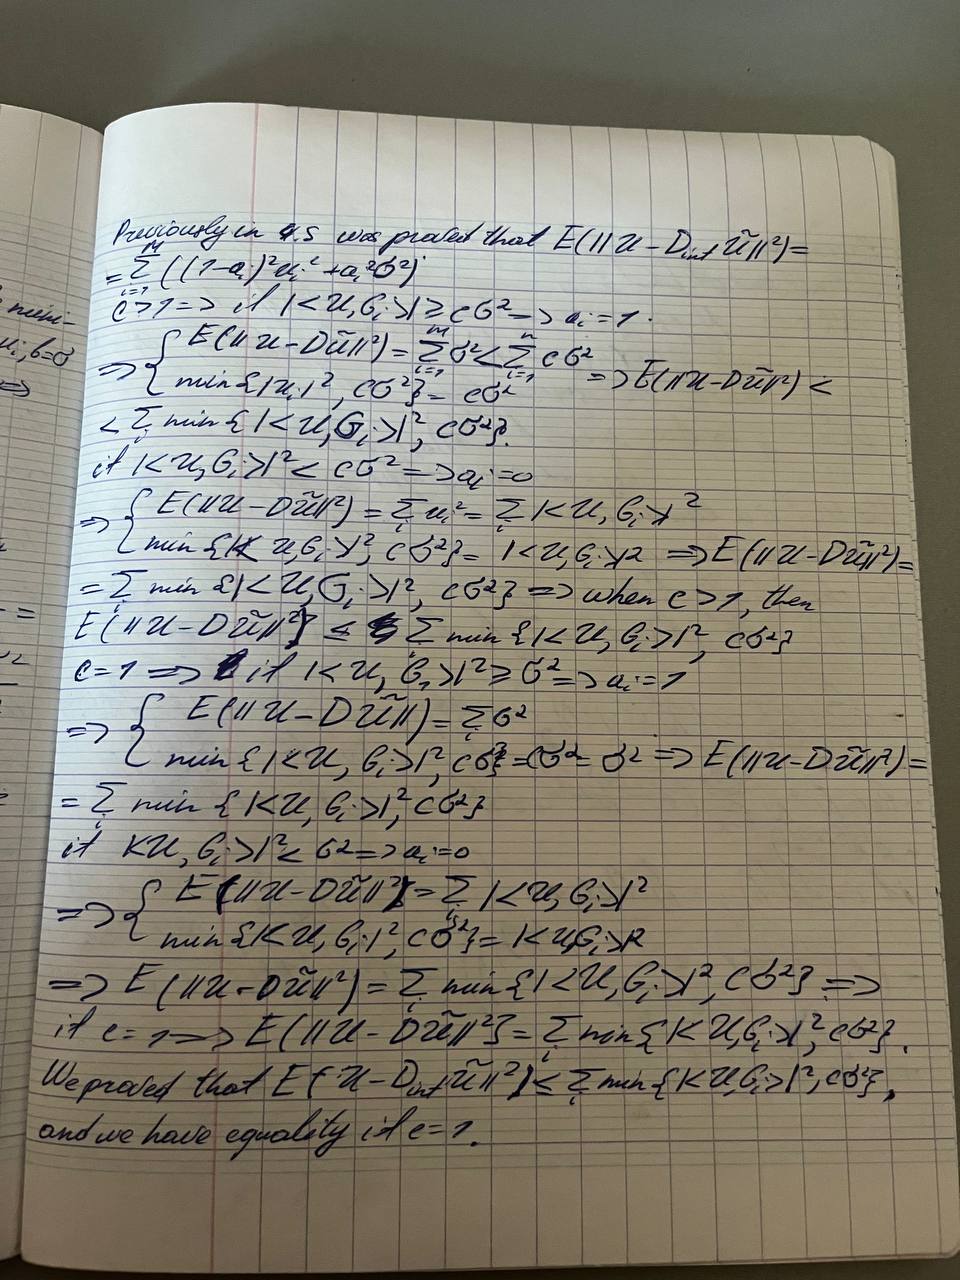 Previously in 4.5 was proved that E(||U - D_int Ũ||²) =
= Σ_{i=1}^{M} ((1-a_i)² u_i² + a_i² σ²)
c > 1 => if |<U, G_i>| ≥ cσ² => a_i = 1.
=> { E(||U - DŨ||²) = Σ_{i=1}^{m} σ² < Σ_{i=1}^{n} cσ² => E(||U - DŨ||²) <
min{|u_i|², cσ²} = cσ²
< Σ_i min{|<U, G_i>|², cσ²}.
if |<U, G_i>|² < cσ² => a_i = 0
=> { E(||U - DŨ||²) = Σ_i u_i² = Σ_i |<U, G_i>|²
min{|<U, G_i>|², cσ²} = |<U, G_i>|2 => E(||U - DŨ||²) =
= Σ_i min{|<U, G_i>|², cσ²} => when c > 1, then
E(||U - DŨ||²} ≤ Σ min{|<U, G_i>|², cσ²}
c = 1 => if |<U, G_i>|² ≥ σ² => a_i = 1
=> { E(||U - DŨ||) = Σ_i σ²
min{|<U, G_i>|², cσ²} = cσ² = σ² => E(||U - DŨ||²) =
= Σ_i min{|<U, G_i>|², cσ²}
if |<U, G_i>|² < σ² => a_i = 0
=> { E(||U - DŨ||²) = Σ_i |<U, G_i>|²
min{|<U, G_i>|², cσ²} = |<U, G_i>|²
=> E(||U - DŨ||²) = Σ_i min{|<U, G_i>|², cσ²} =>
if c = 1 => E(||U - DŨ||²} = Σ_i min{|<U, G_i>|², cσ²}.
We proved that E(U - D_int Ũ||²) ≤ Σ_i min{|<U, G_i>|², cσ²},
and we have equality if c = 1.